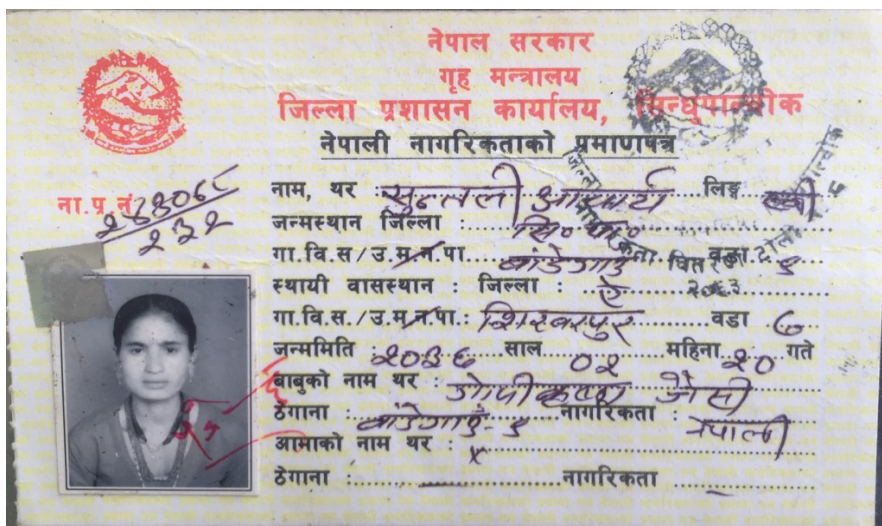 नेपाल सरकार
गृह मन्त्रालय
जिल्ला प्रशासन कार्यालय, सिन्धुपाल्चोक
नेपाली नागरिकताको प्रमाणपत्र
ना.प्र.नं.
२३२
नाम, थर : सुन्तली आचार्य लिङ्ग स्त्री
जन्मस्थान जिल्ला : सि० पा०
गा.वि.स/उ.म.न.पा बाँडेगाउँ वडा
स्थायी वासस्थान : जिल्ला : ऐ
गा.वि.स./उ.म.न.पा.: शिखरपुर वडा ७
जन्ममिति : २०३६ साल ०२ महिना २० गते
बाबुको नाम थर : गोपीकृष्ण जैसी
ठेगाना : बाँडेगाउँ नागरिकता : नेपाली
आमाको नाम थर : x
ठेगाना : नागरिकता